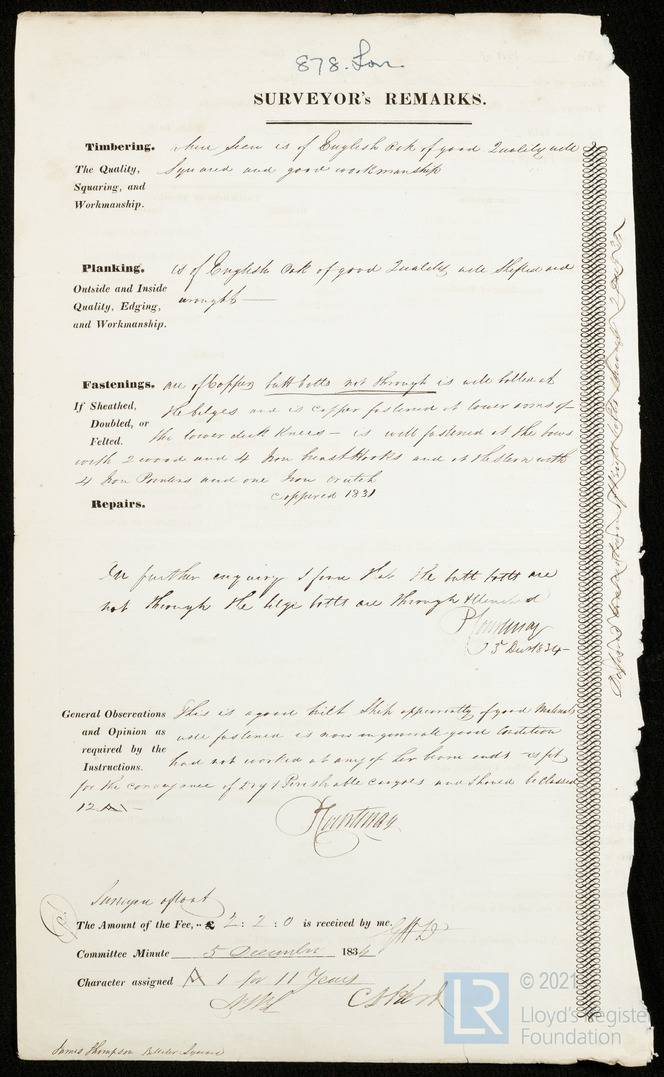 878. Lon.
SURVEYOR's REMARKS.
Timbering. where seen is of English Oak of good Quality well
The Quality, Squaring, and Workmanship. Squared and good workmanship
Planking. is of English Oak of good Quality well shifted and
Outside and Inside Quality, Edging, and Workmanship. wrought
Fastenings. are of Copper butt bolts not through is well bolted at
If Sheathed, Doubled, or Felted. the bilges and is copper fastened at lower arms of
the lower deck Knees - is well fastened at the bows
with 2 wood and 4 Iron breast Hooks and at the stern with
4 Iron Pointers and one Iron crutch
coppered 1831
Repairs.
On further enquiry I found that the butt bolts are
not through the bilge bolts are through & clenched
P Courtenay
5 Decr 1834
General Observations and Opinion as required by the Instructions. This is a good built Ship apparently of good Materials
well fastened is now in generale good Condition
had not worked at any of her beam ends - is fit
for the conveyance of Dry & Perishable cargoes and should be classed
12 A1 -
P Courtenay
Surveyed afloat
The Amount of the Fee, -- £ 2 : 2 : 0 is received by me.
Committee Minute 5 December 1834
Character assigned A 1 for 11 Years
James Thompson Billiter Square
LR
© 2021
Lloyd's Register
Foundation